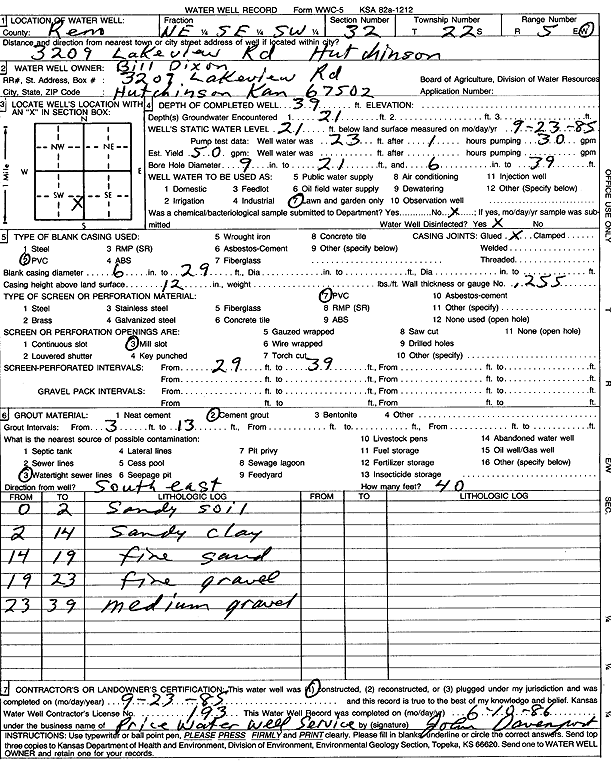 WATER WELL RECORD Form WWC-5 KSA 82a-1212
1 LOCATION OF WATER WELL: Fraction Section Number Township Number Range Number
County: Reno NE ¼ SE ¼ SW ¼ 32 T 22 S R 5 E/W
Distance and direction from nearest town or city street address of well if located within city?
3209 Lakeview Rd Hutchinson
2 WATER WELL OWNER: Bill Dixon
RR#, St. Address, Box # : 3209 Lakeview Rd Board of Agriculture, Division of Water Resources
City, State, ZIP Code : Hutchinson Kan 67502 Application Number:
3 LOCATE WELL'S LOCATION WITH AN "X" IN SECTION BOX:
N
NW NE
W E
SW SE
X
S
1 Mile
4 DEPTH OF COMPLETED WELL 39 ft. ELEVATION:
Depth(s) Groundwater Encountered 1. 21 ft. 2. ft. 3. ft.
WELL'S STATIC WATER LEVEL 21 ft. below land surface measured on mo/day/yr 9-23-85
Pump test data: Well water was 23 ft. after 1 hours pumping 30 gpm
Est. Yield 50 gpm: Well water was ft. after hours pumping gpm
Bore Hole Diameter 9 in. to 21 ft., and 6 in. to 39 ft.
WELL WATER TO BE USED AS: 5 Public water supply 8 Air conditioning 11 Injection well
1 Domestic 3 Feedlot 6 Oil field water supply 9 Dewatering 12 Other (Specify below)
2 Irrigation 4 Industrial 7 Lawn and garden only 10 Observation well
Was a chemical/bacteriological sample submitted to Department? Yes No X ; If yes, mo/day/yr sample was sub-
mitted Water Well Disinfected? Yes X No
5 TYPE OF BLANK CASING USED: 5 Wrought iron 8 Concrete tile CASING JOINTS: Glued X Clamped
1 Steel 3 RMP (SR) 6 Asbestos-Cement 9 Other (specify below) Welded
2 PVC 4 ABS 7 Fiberglass Threaded
Blank casing diameter 6 in. to 29 ft., Dia in. to ft., Dia in. to ft.
Casing height above land surface 12 in., weight lbs./ft. Wall thickness or gauge No. .255
TYPE OF SCREEN OR PERFORATION MATERIAL: 7 PVC 10 Asbestos-cement
1 Steel 3 Stainless steel 5 Fiberglass 8 RMP (SR) 11 Other (specify)
2 Brass 4 Galvanized steel 6 Concrete tile 9 ABS 12 None used (open hole)
SCREEN OR PERFORATION OPENINGS ARE: 5 Gauzed wrapped 8 Saw cut 11 None (open hole)
1 Continuous slot 3 Mill slot 6 Wire wrapped 9 Drilled holes
2 Louvered shutter 4 Key punched 7 Torch cut 10 Other (specify)
SCREEN-PERFORATED INTERVALS: From 29 ft. to 39 ft., From ft. to ft.
From ft. to ft., From ft. to ft.
GRAVEL PACK INTERVALS: From ft. to ft., From ft. to ft.
From ft. to ft., From ft. to ft.
6 GROUT MATERIAL: 1 Neat cement 2 Cement grout 3 Bentonite 4 Other
Grout Intervals: From 3 ft. to 13 ft., From ft. to ft., From ft. to ft.
What is the nearest source of possible contamination: 10 Livestock pens 14 Abandoned water well
1 Septic tank 4 Lateral lines 7 Pit privy 11 Fuel storage 15 Oil well/Gas well
2 Sewer lines 5 Cess pool 8 Sewage lagoon 12 Fertilizer storage 16 Other (specify below)
3 Watertight sewer lines 6 Seepage pit 9 Feedyard 13 Insecticide storage
Direction from well? South east How many feet? 40
FROM TO LITHOLOGIC LOG FROM TO LITHOLOGIC LOG
0 2 Sandy soil
2 14 Sandy clay
14 19 fine sand
19 23 fine gravel
23 39 medium gravel
7 CONTRACTOR'S OR LANDOWNER'S CERTIFICATION: This water well was (1) constructed, (2) reconstructed, or (3) plugged under my jurisdiction and was
completed on (mo/day/year) 9-23-85 and this record is true to the best of my knowledge and belief. Kansas
Water Well Contractor's License No. 193 This Water Well Record was completed on (mo/day/yr) 6-10-86
under the business name of Price Water Well Service by (signature) John Davenport
INSTRUCTIONS: Use typewriter or ball point pen, PLEASE PRESS FIRMLY and PRINT clearly. Please fill in blanks, underline or circle the correct answers. Send top
three copies to Kansas Department of Health and Environment, Division of Environment, Environmental Geology Section, Topeka, KS 66620. Send one to WATER WELL
OWNER and retain one for your records.
OFFICE USE ONLY
T
R
E/W
SEC.
¼
¼
¼